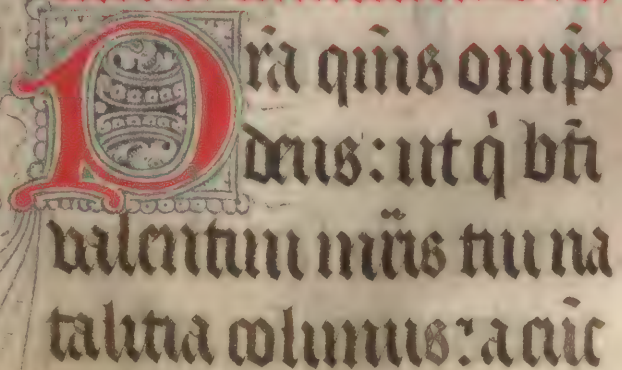 Pr̄a qm̄s om̄ps
deus: ut q̇ bt̄i
valentini mr̄is tui na
talitia colimus: a cūc